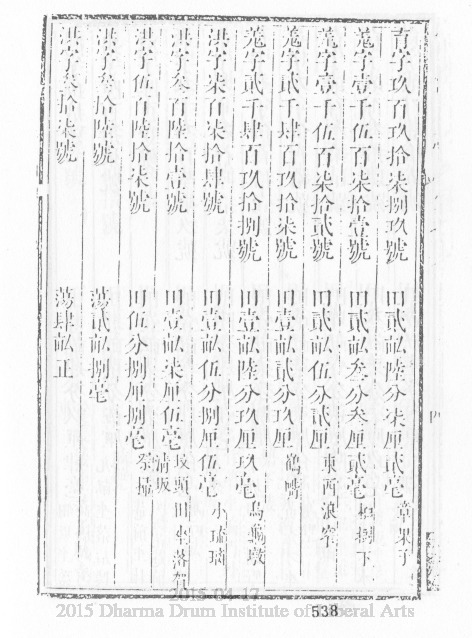 字玖百玖拾柒捌玖號 田貳畝陸分柒厘貳毫 章果子
蒐字壹千伍百柒拾壹號 田貳畝叁分矣厘貳毫 樹下
蒐字壹千伍百柒拾貳號 田貳畝伍分貳厘 東西浪窄
蒐字貳千肆百玖拾柒號 田壹畝貳分玖厘 鶴
蒐字貳千肆百玖拾捌號 田壹畝陸分玖厘玖毫 烏龜墩
洪字柒百柒拾肆號 田壹畝伍分捌厘伍毫 小琉璃
洪字叁百陸拾壹號 田壹畝柒厘伍毫 坟頭田坐落 清坂
洪字伍百陸拾柒號 田伍分捌厘捌毫 祭掃
洪字叁拾陸號 蕩貳畝捌毫
洪字叁拾柒號 蕩肆畝正
2015 04 17
538
2015 Dharma Drum Institute of Liberal Arts